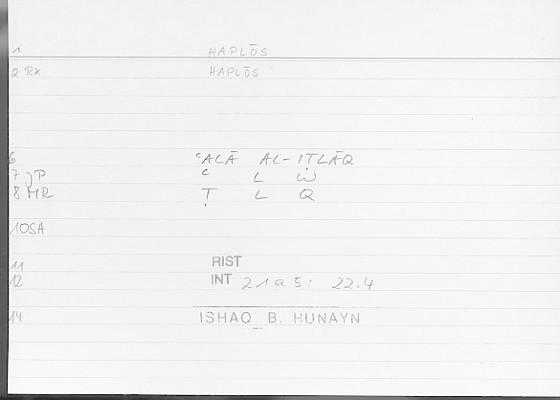 1 HAPLŌS
2 RX HAPLŌS
6 ʿALĀ AL-IṬLĀQ
7 JP ʿ L W
8 MR Ṭ L Q
10SA
11 RIST
12 INT 21a5: 22.4
14 ISHAQ B. HUNAYN